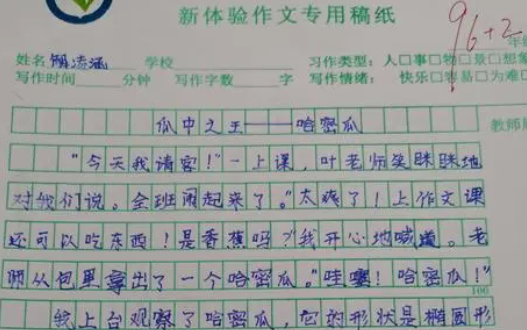 新体验作文专用稿纸
96+2
姓名 学校 习作类型：人□事□物□景□想象
写作时间 分钟 写作字数 字 写作情绪： 快乐□容易□为难□
瓜中之王——哈密瓜
教师
"今天我请客！"一上课，叶老师笑眯眯地
对我们说。全班闹起来了。"太爽了！上作文课
还可以吃东西！是香蕉吗？"我开心地喊道。老
师从包里拿出了一个哈密瓜。"哇噻！哈密瓜！"
100
我上台观察了哈密瓜，它的形状是椭圆形